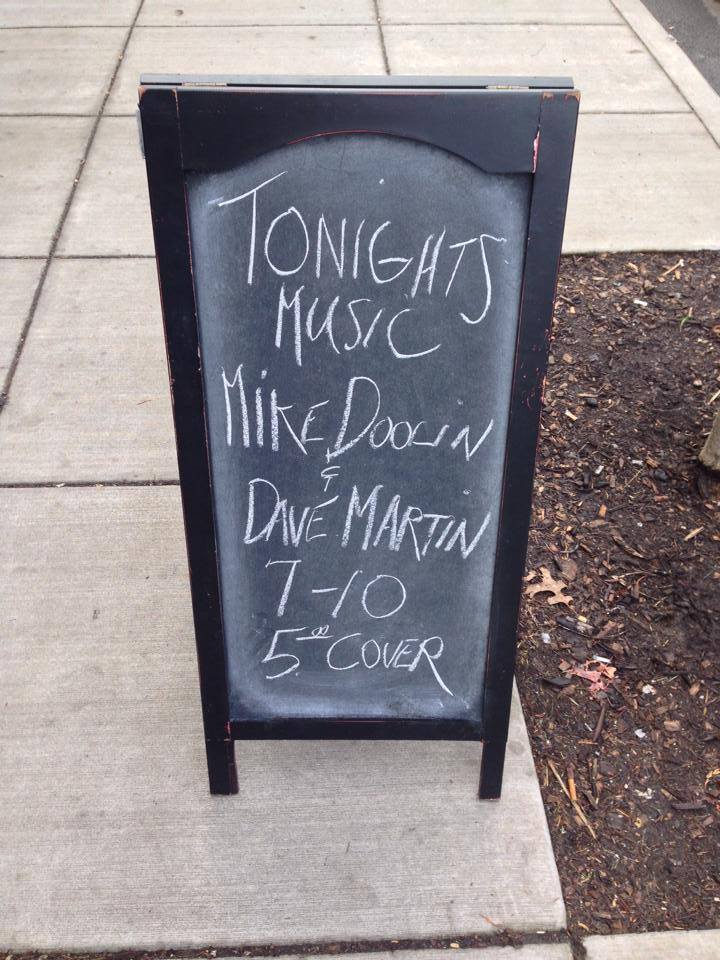 TONIGHTS
MUSIC
MIKE DOOLIN
&
DAVE MARTIN
7-10
5.00 COVER